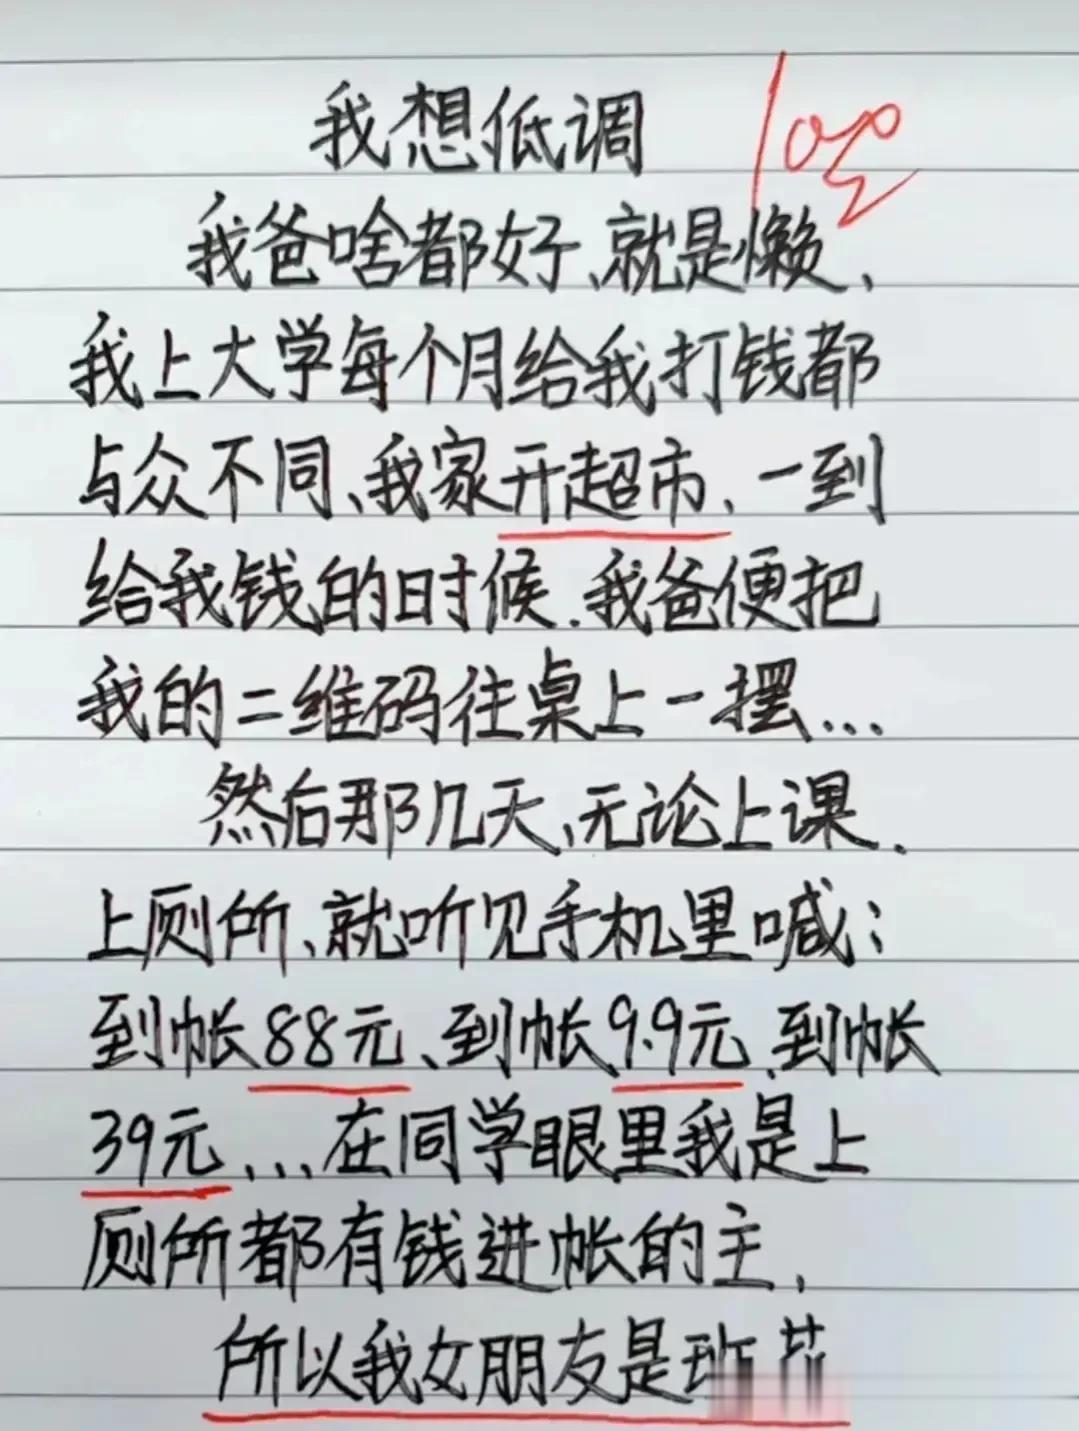 我想低调
100分
我爸啥都好、就是懒、
我上大学每个月给我打钱都
与众不同、我家开超市、一到
给我钱的时候.我爸便把
我的二维码往桌上一摆...
然后那几天、无论上课、
上厕所、就听见手机里喊:
到帐88元、到帐9.9元、到帐
39元...在同学眼里我是上
厕所都有钱进帐的主、
所以我女朋友是班花